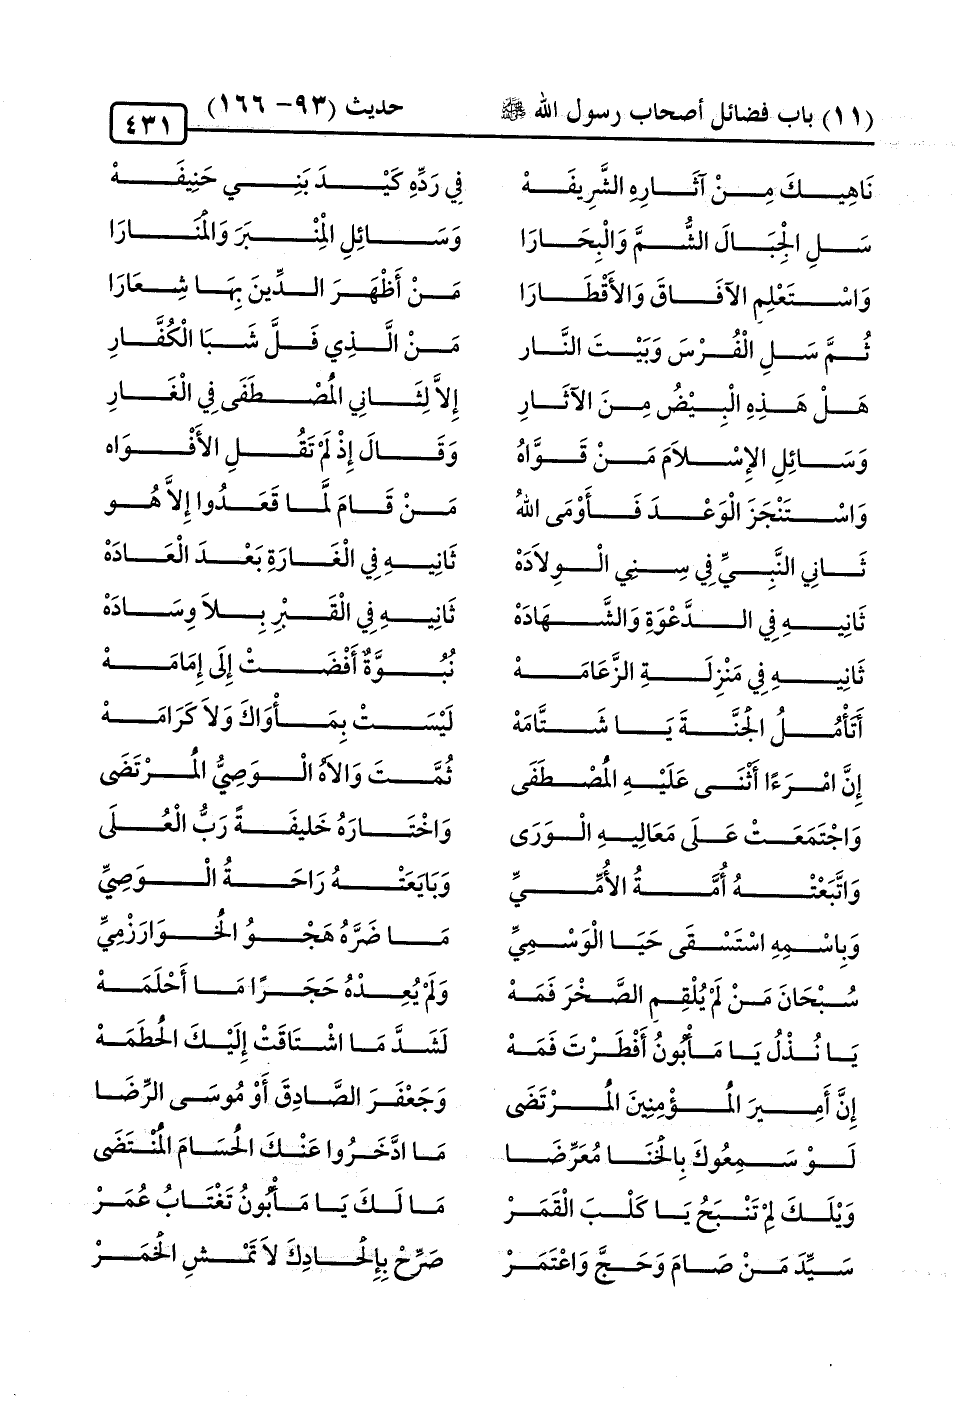 (١١) باب فضائل أصحاب رسول الله ﷺ حديث (٩٣- ١٦٦) ٤٣١
نَاهِيكَ مِنْ آثَارِهِ الشَّرِيفَهْ فِي رَدِّهِ كَيْدَ بَنِي حَنِيفَهْ
سَلِ الْجِبَالَ الشُّمَّ وَالْبِحَارَا وَسَائِلِ الْمِنْبَرَ وَالْمَنَارَا
وَاسْتَعْلِمِ الآفَاقَ وَالأَقْطَارَا مَنْ أَظْهَرَ الدِّينَ بِهَا شِعَارَا
ثُمَّ سَلِ الْفُرْسَ وَبَيْتَ النَّارِ مَنْ الَّذِي فَلَّ شَبَا الْكُفَّارِ
هَلْ هَذِهِ الْبِيْضُ مِنَ الآثَارِ إِلاَّ لِثَانِي الْمُصْطَفَى فِي الْغَارِ
وَسَائِلِ الإِسْلاَمَ مَنْ قَوَّاهُ وَقَالَ إِذْ لَمْ تَقُلِ الأَفْوَاه
وَاسْتَنْجَزَ الْوَعْدَ فَأَوْمَى اللهُ مَنْ قَامَ لَمَّا قَعَدُوا إِلاَّ هُو
ثَانِي النَّبِيِّ فِي سِنِي الْولاَدَهْ ثَانِيهِ فِي الْغَارَةِ بَعْدَ الْعَادَهْ
ثَانِيهِ فِي الدَّعْوَةِ وَالشَّهَادَهْ ثَانِيهِ فِي الْقَبْرِ بِلاَ وِسَادَهْ
ثَانِيهِ فِي مَنْزِلَةِ الزَّعَامَهْ نُبُوَّةٌ أَفْضَتْ إِلَى إِمَامَهْ
أَتَأْمُلُ الْجَنَّةَ يَا شَتَّامَهْ لَيْسَتْ بِمَأْوَاكَ وَلاَ كَرَامَهْ
إِنَّ امْرَءًا أَثْنَى عَلَيْهِ الْمُصْطَفَى ثُمَّتَ وَالاَهُ الْوَصِيُّ الْمُرْتَضَى
وَاجْتَمَعَتْ عَلَى مَعَالِيهِ الْوَرَى وَاخْتَارَهُ خَلِيفَةً رَبُّ الْعُلَى
وَاتَّبَعْتْهُ أُمَّةُ الأُمِّيِّ وَبَايَعَتْهُ رَاحَةُ الْوَصِيِّ
وَبِاسْمِهِ اسْتَسْقَى حَيَا الْوَسْمِيِّ مَا ضَرَّهُ هَجْوُ الْخُوَارَزْمِيِّ
سُبْحَانَ مَنْ لَمْ يُلْقِمِ الصَّخْرَ فَمَهْ وَلَمْ يُعِدْهُ حَجَرًا مَا أَحْلَمَهْ
يَا نُذْلُ يَا مَأْبُونُ أَفْطَرْتَ فَمَهْ لَشَدَّ مَا اشْتَاقَتْ إِلَيْكَ الْحُطَمَهْ
إِنَّ أَمِيرَ الْمُؤْمِنِينَ الْمُرْتَضَى وَجَعْفَرَ الصَّادِقَ أَوْ مُوسَى الرِّضَا
لَوْ سَمِعُوكَ بِالْخَنَا مُعَرِّضَا مَا ادَّخَرُوا عَنْكَ الْحُسَامَ الْمُنْتَضَى
وَيْلَكَ لِمْ تَنْبَحُ يَا كَلْبَ الْقَمَرْ مَا لَكَ يَا مَأْبُونُ تَغْتَابُ عُمَرْ
سَيِّدَ مَنْ صَامَ وَحَجَّ وَاعْتَمَرْ صَرِّحْ بِإِلْحَادِكَ لاَ تَمْشِ الْخَمَرْ